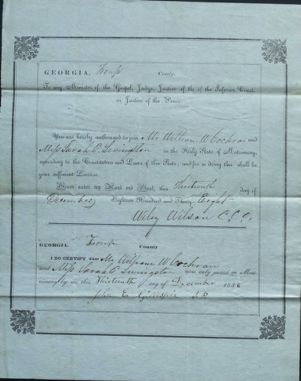 GEORGIA, Troup County.
To any Minister of the Gospel, Judge, Justice of the Inferior Court,
or Justice of the Peace.
You are hereby authorized to join Mr William W Cochran and
Miss Sarah C in the Holy State of Matrimony,
according to the Constitution and Laws of this State; and for so doing this shall be
your sufficient License.
Given under my Hand and Seal, this thirteenth day of
December Eighteen Hundred and Thirty Eight
Wiley Wilson C.C.O.
GEORGIA, Troup County
I DO CERTIFY that Mr William W Cochran
and Miss Sarah C were duly joined in Matri-
mony by me this Thirteenth day of December 1838
John E J.P.